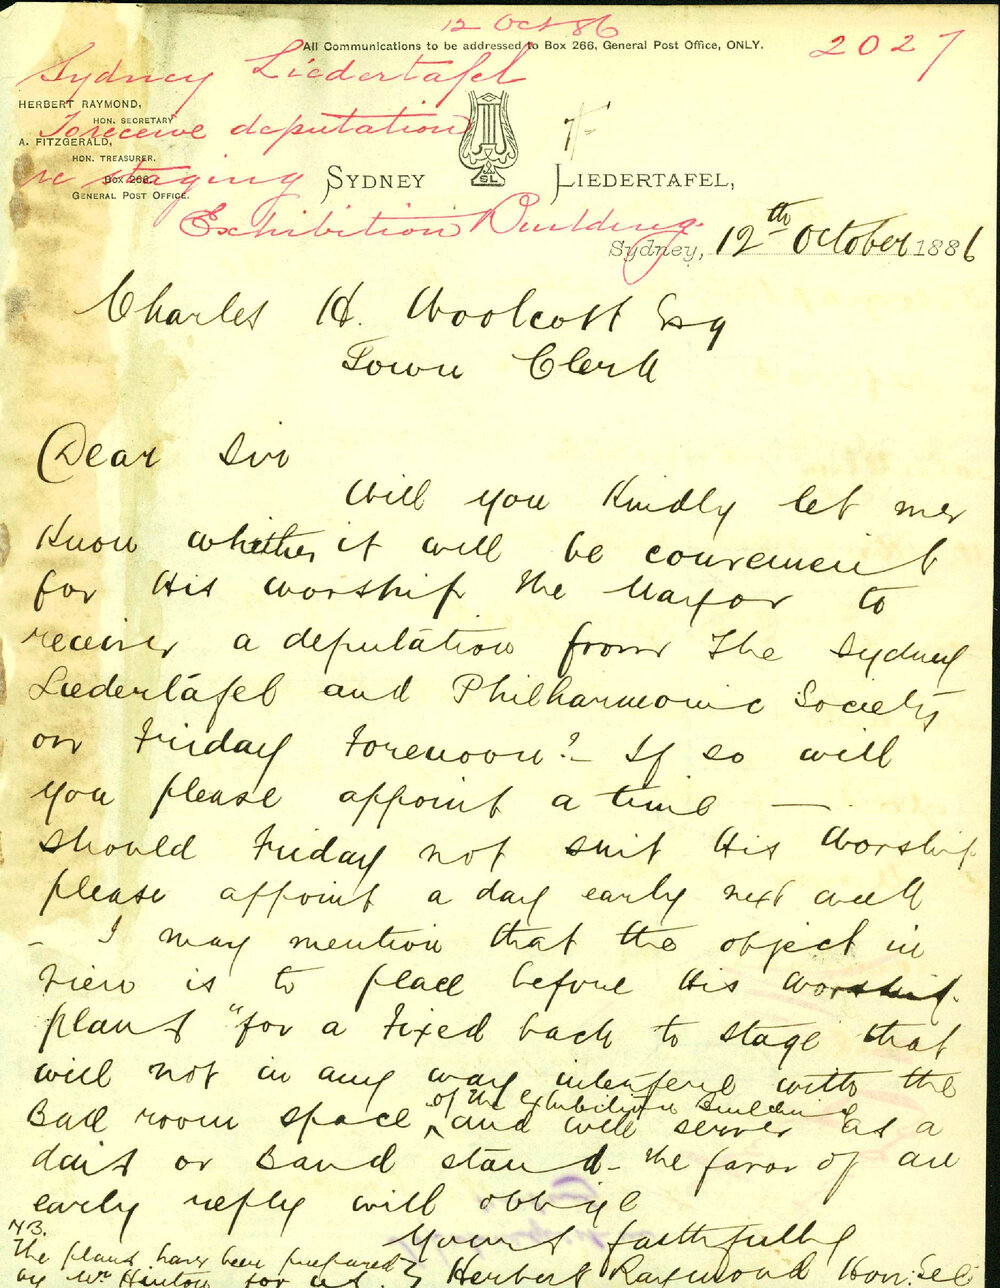 12 Oct 86
All Communications to be addressed to Box 266, General Post Office, ONLY.
2027
Sydney Liedertafel
HERBERT RAYMOND,
HON. SECRETARY
To receive deputation
A. FITZGERALD,
HON. TREASURER.
re staging
Box 266.
GENERAL POST OFFICE.
SL
SYDNEY LIEDERTAFEL,
Exhibition Building.
Sydney, 12th October 1886
Charles H. Woolcott Esq
Town Clerk
Dear Sir
Will you kindly let me
know whether it will be convenient
for His Worship the Mayor to
receive a deputation from The Sydney
Liedertafel and Philharmonic Society
on Friday Forenoon? - If so will
you please appoint a time —
should Friday not suit His Worship
please appoint a day early next week
- I may mention that the object in
view is to place before His Worship
plans "for a Fixed back to stage that
will not in any way interfere with the
Ball room space of the Exhibition Building and will serve as a
dais or Band stand - the favor of an
early reply will oblige
Yours faithfully
Herbert Raymond Hon. Sec
N.B.
The plans have been prepared
by Mr Hinton for us.